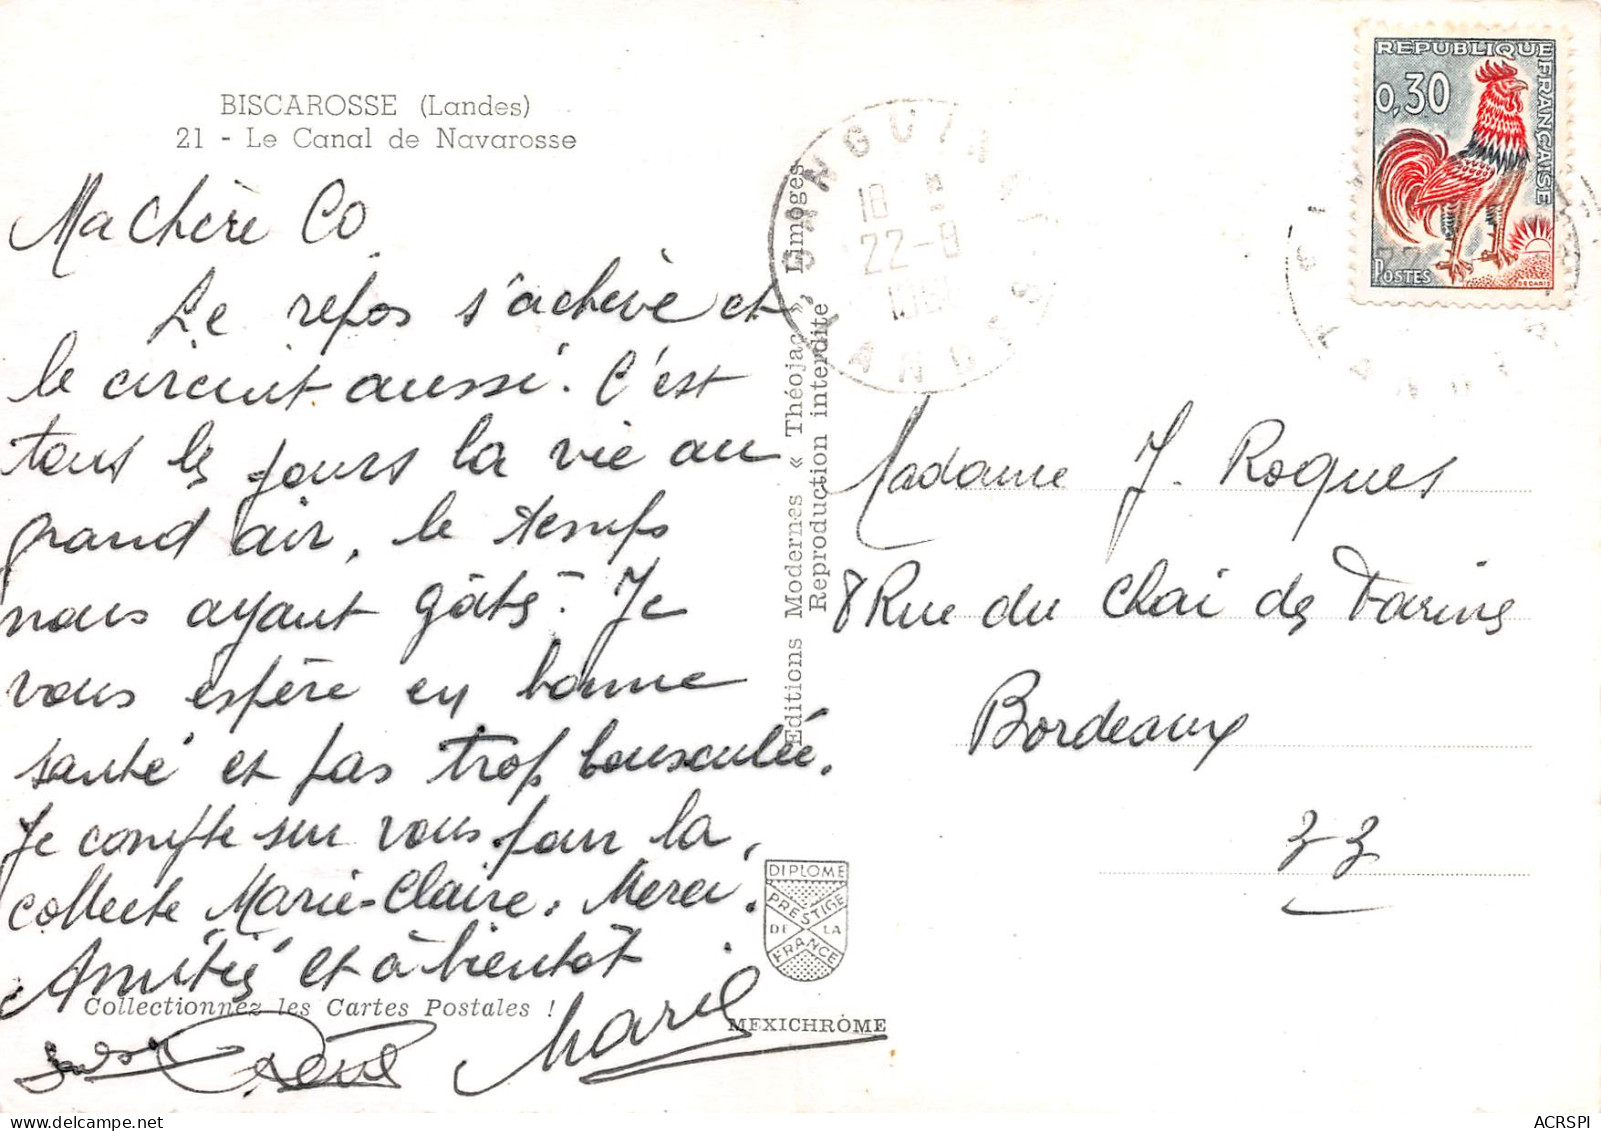 BISCAROSSE (Landes)
21 - Le Canal de Navarosse
Ma Chère Co
Le repos s'achève et
le circuit aussi. C'est
tous les jours la vie au
grand air, le temps
nous ayant gâtés. Je
vous espère en bonne
santé et pas trop bousculée.
Je compte sur vous pour la
collecte Marie-Claire. Merci.
Amitiés et à bientôt
Collectionnez les Cartes Postales !
Marie
Editions Modernes « Théojac », Limoges
Reproduction interdite
DIPLOME
PRESTIGE
DE LA
FRANCE
MEXICHROME
SANGUINET
18
22-8
LANDES
REPUBLIQUE FRANÇAISE
0,30
POSTES
DECARIS
Madame J. Roques
8 Rue du Chai des Farines
Bordeaux
33
ACRSPI